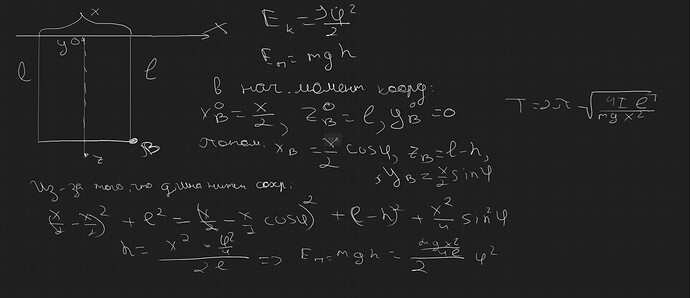 x
X
yO
l
l
B
z
E_k = Jφ̇²/2
E_п = mgh
В нач. момент коорд:
x_B^0 = x/2, z_B^0 = l, y_B^0 = 0
T = 2π √(4Il/mgx²)
Потом: x_B = x/2 cosφ, z_B = l - h,
, y_B = x/2 sinφ
Из-за того, что длина нити сохр.
(x/2 - x/2)² + l² = (x/2 - x/2 cosφ)² + (l - h)² + x²/4 sin²φ
h = (x² · φ²/4)/2l => E_п = mgh = (mgx²/4l)/2 φ²